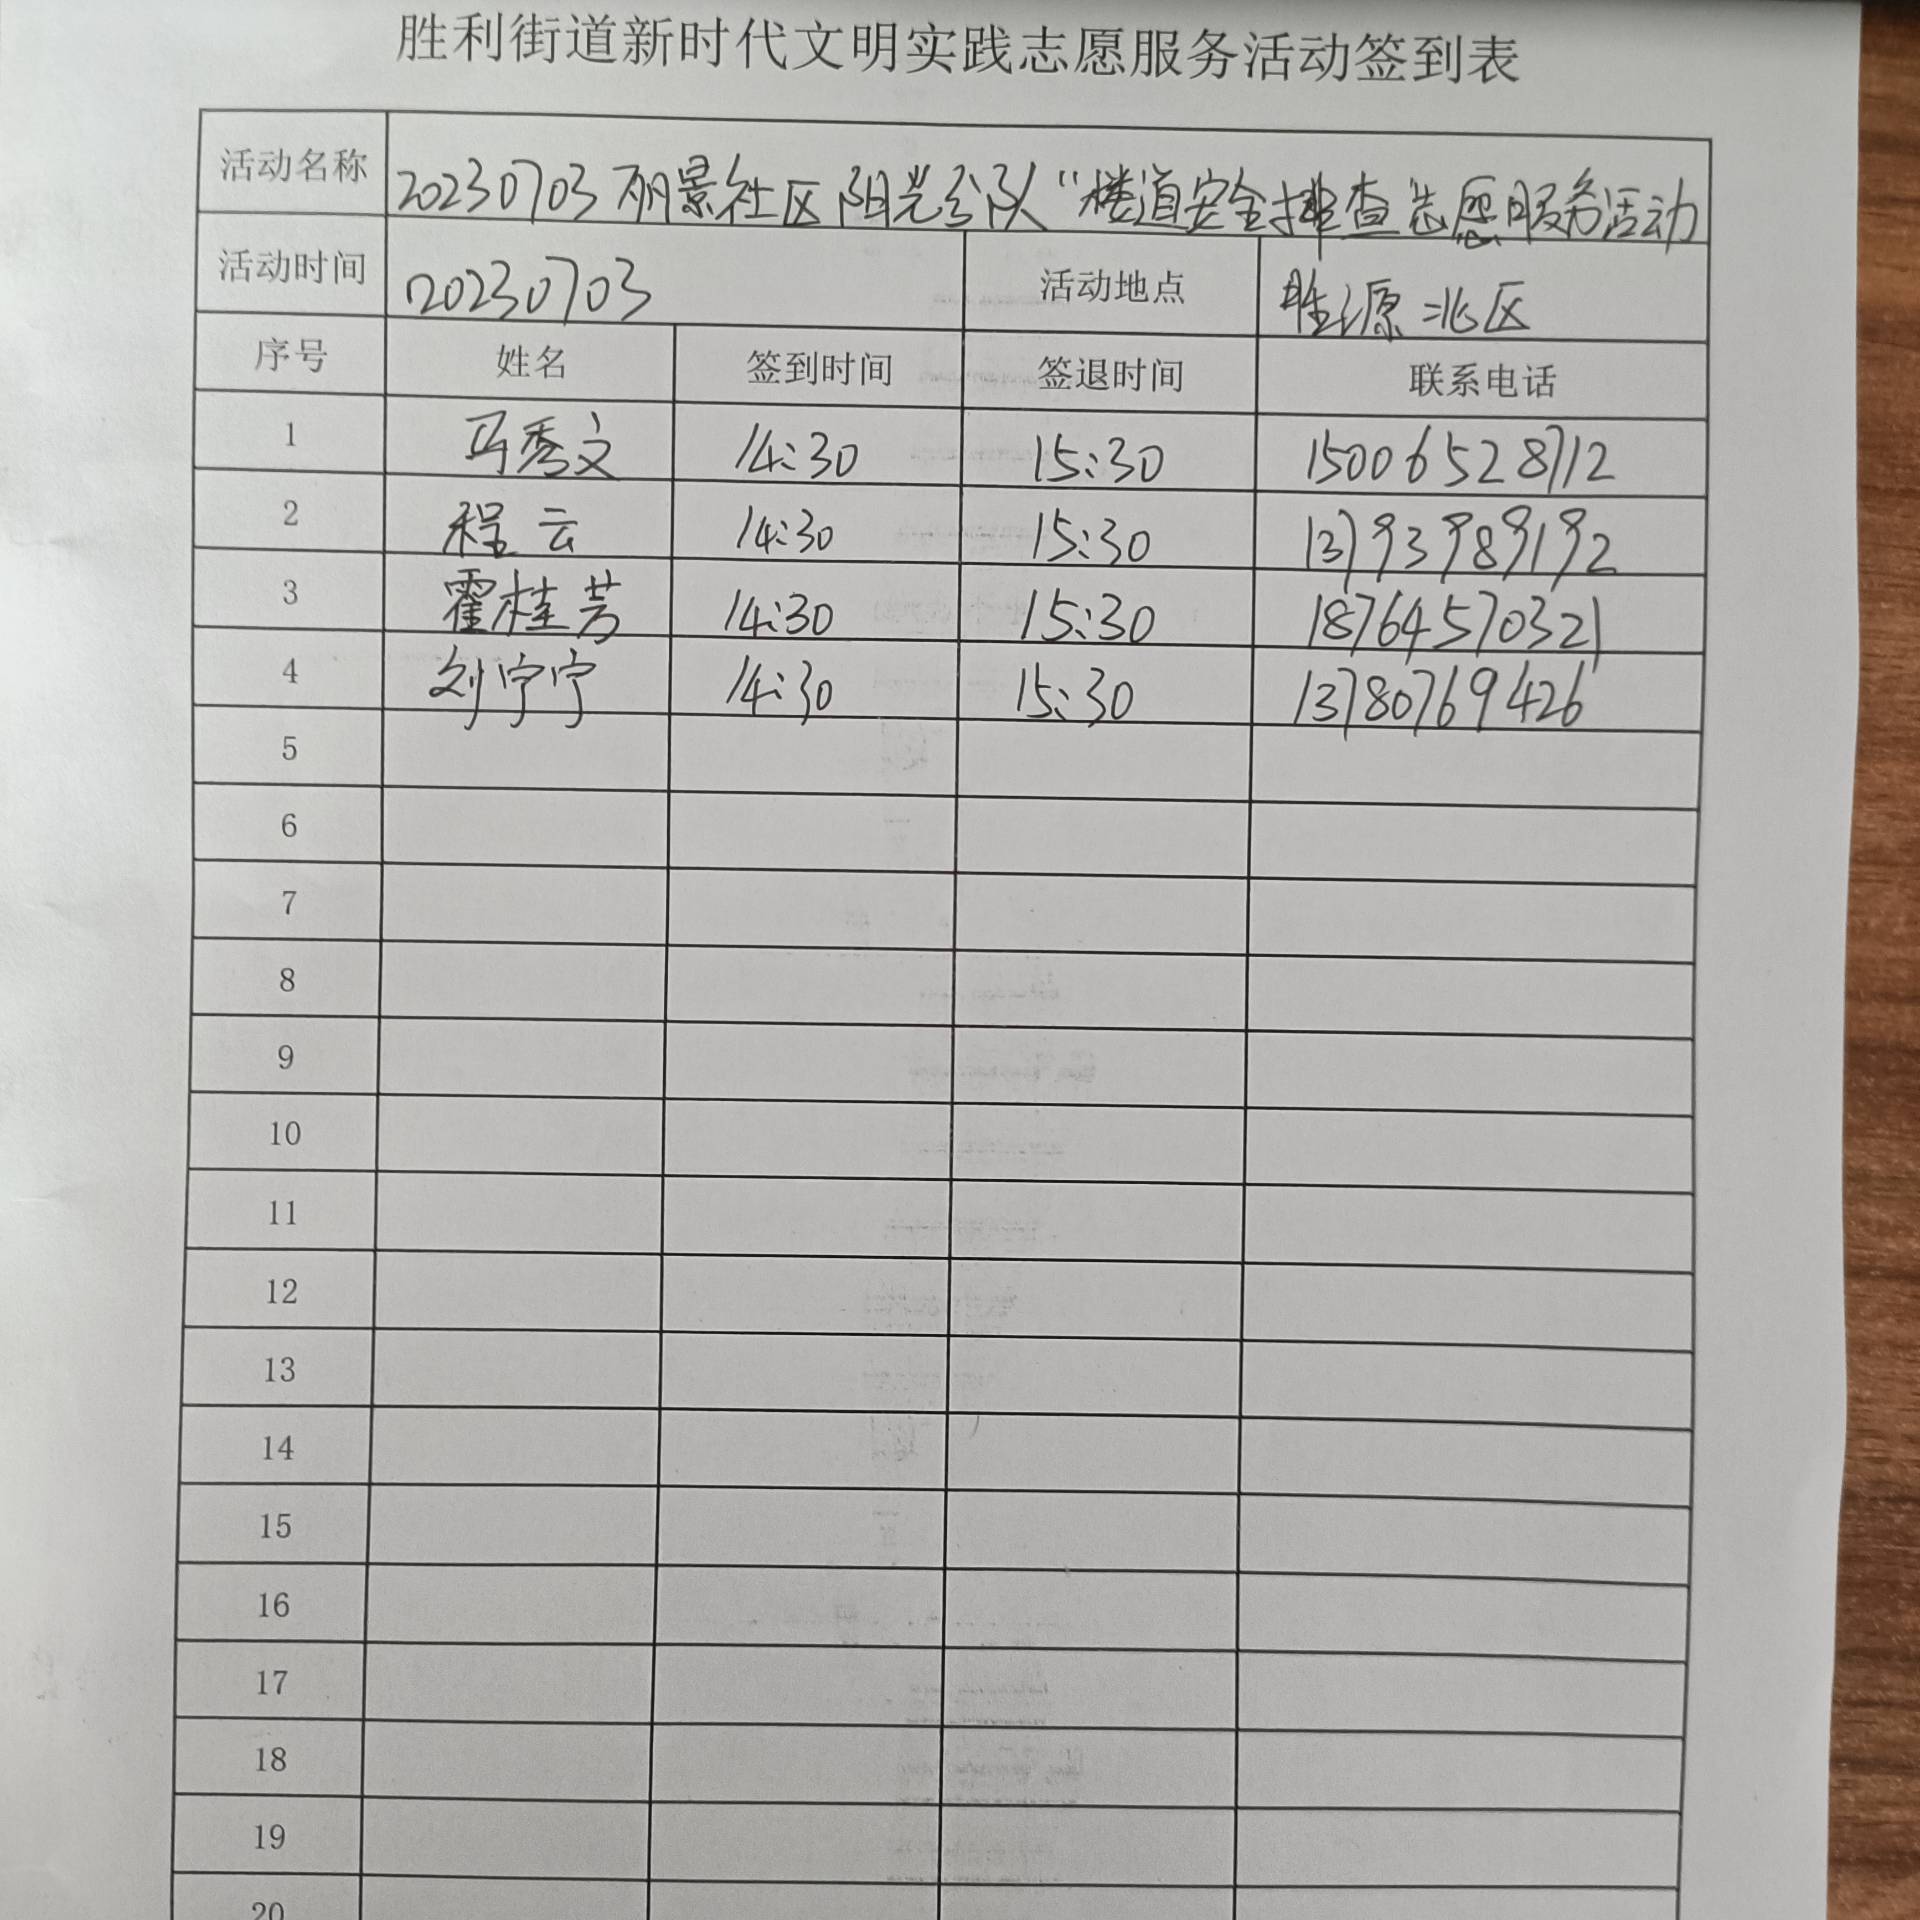 胜利街道新时代文明实践志愿服务活动签到表
活动名称 20230703丽景社区阳光分队“楼道安全排查志愿服务活动
活动时间 20230703 活动地点 胜源北区
序号 姓名 签到时间 签退时间 联系电话
1 马秀文 14:30 15:30 15006528712
2 程云 14:30 15:30 13793989192
3 霍桂芳 14:30 15:30 18764570321
4 刘宁宁 14:30 15:30 13780769426
5
6
7
8
9
10
11
12
13
14
15
16
17
18
19
20